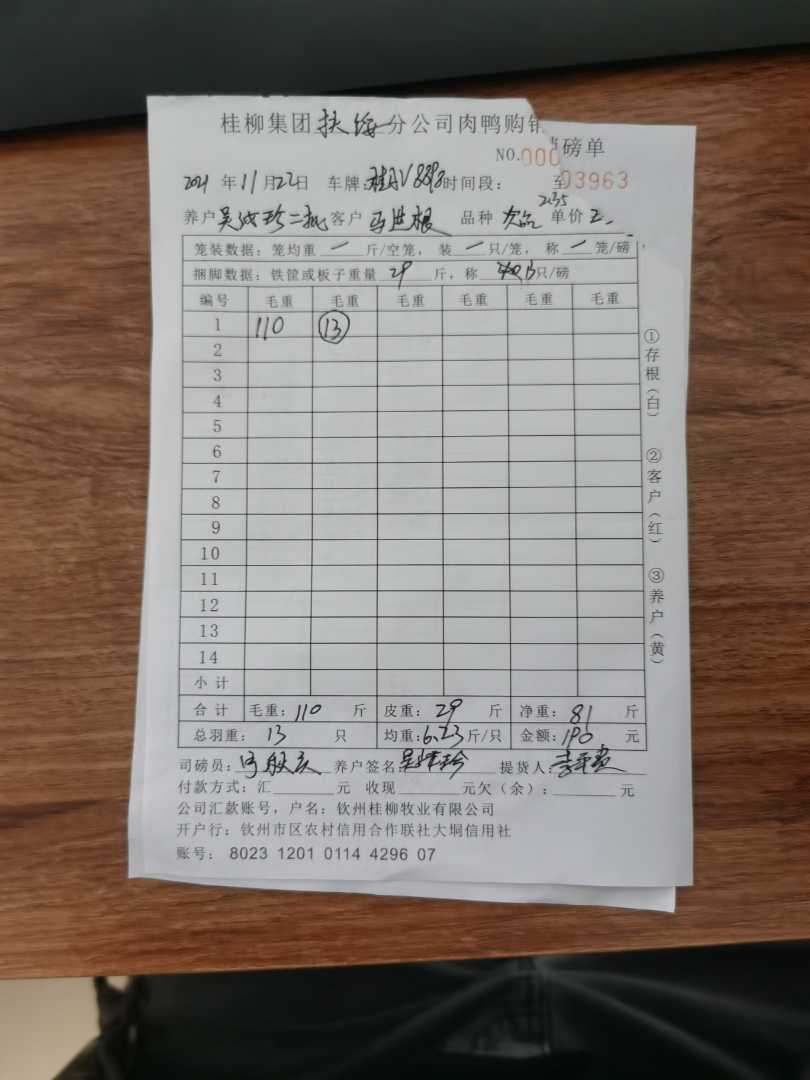 桂柳集团扶绥分公司肉鸭购销磅单
NO.000 03963
2021年11月22日 车牌: 时间段: 至
养户 吴 珍二批 客户 马进根 品种 次品 单价 2.35
笼装数据:笼均重 一 斤/空笼,装 一 只/笼,称 一 笼/磅
捆脚数据:铁筐或板子重量 29 斤,称 只/磅
编号 毛重 毛重 毛重 毛重 毛重 毛重
1 110 13
2
3
4
5
6
7
8
9
10
11
12
13
14
小计
合计 毛重:110 斤 皮重:29 斤 净重:81 斤
总羽重:13 只 均重:6.23斤/只 金额:190 元
司磅员: 养户签名 吴 珍 提货人:
付款方式:汇 元 收现 元欠(余): 元
公司汇款账号,户名:钦州桂柳牧业有限公司
开户行:钦州市区农村信用合作联社大垌信用社
账号: 8023 1201 0114 4296 07
①存根(白) ②客户(红) ③养户(黄)